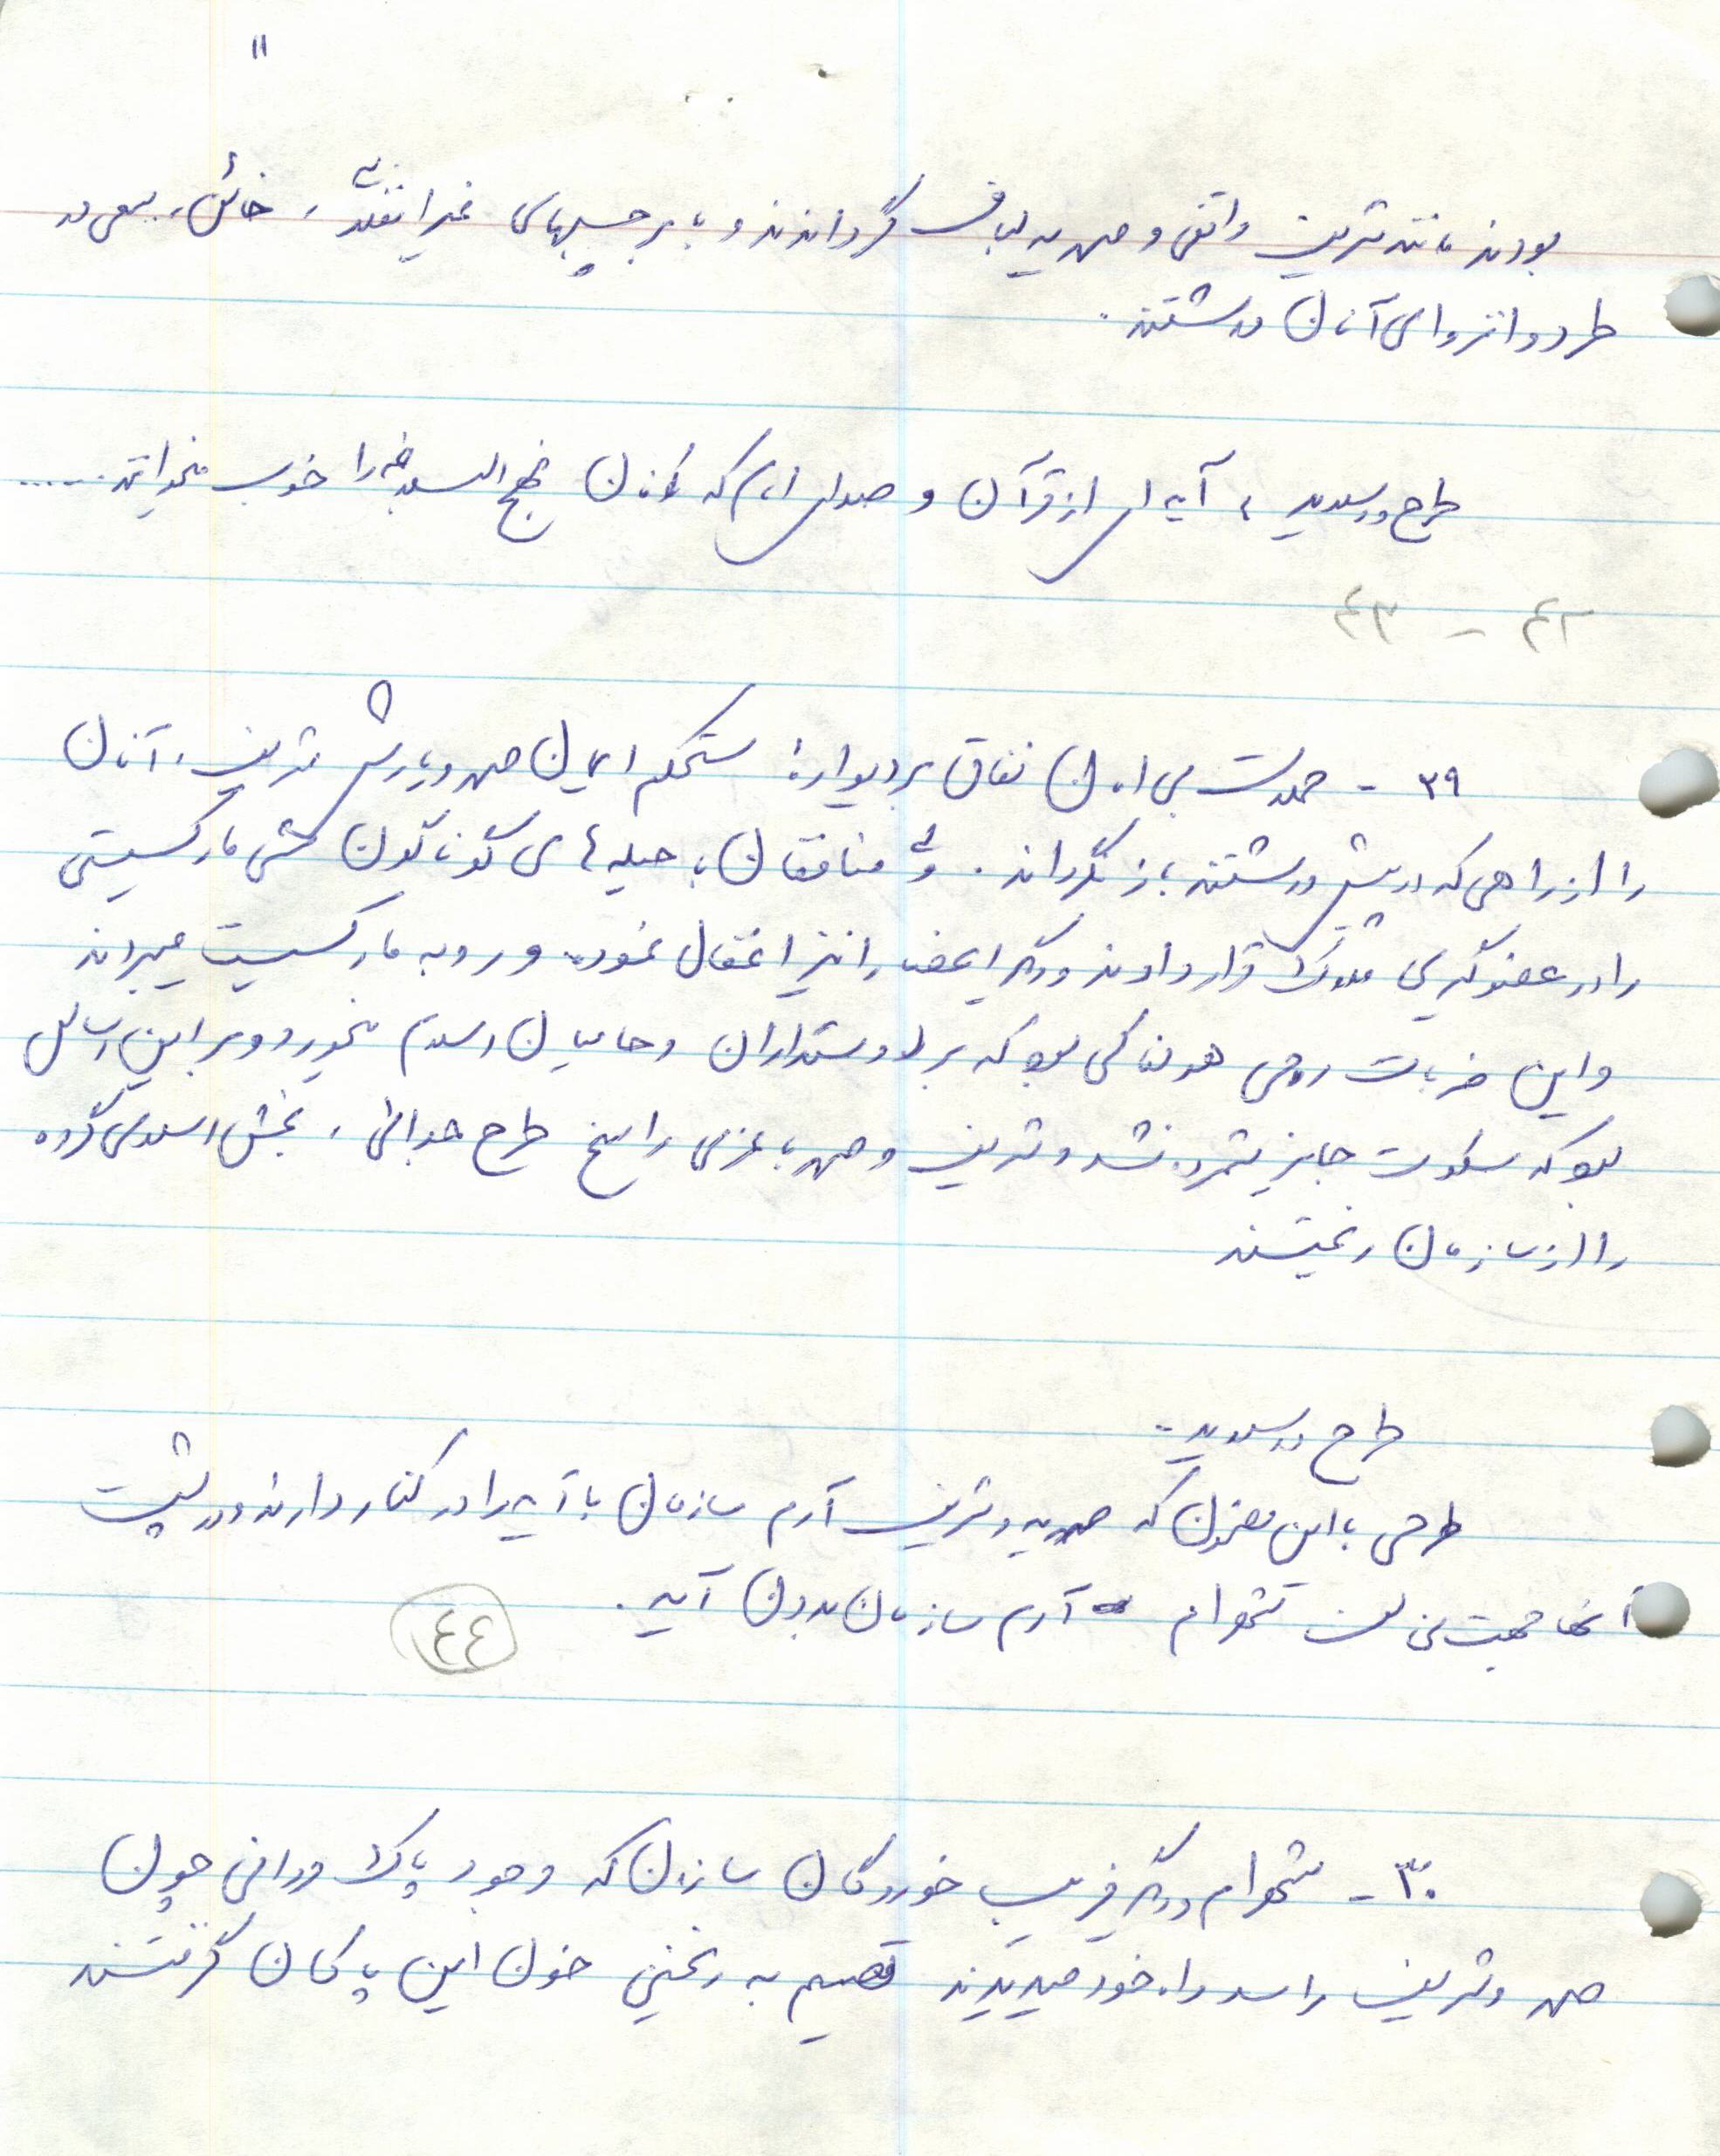 ۱۱
بودند مانند شریف واقفی و صمدیه لباف گرداندند و با برچسبهای غیر انقلابی، خائن، سعی در
طرد و انزوای آنان داشتند.
طرح و اسلاید، آیه ای از قرآن و صدای امام که اینان نهج البلاغه را خوب میخوانند.....
۴۲ - ۴۳
۳۹ - حملات بی امان نفاق بر دیواره مستحکم ایمان صمد و یارش شریف، آنان
را از راهی که در پیش داشتند باز نگرداند. منافقان با حیله های گوناگون مشی مارکسیستی
را در عضوگیری ملاک قرار دادند و دیگر اعضا را نیز اغفال نموده و رو به مارکسیست میبراند
و این ضربات روحی هولناکی بود که بر دوستداران و حامیان اسلام میخورد و بر این اساس
بود که سکوت جایز شمرده نشد و شریف و صمد با عزمی راسخ طرح جدائی، بخش اسلامی گروه
را از سازمان ریختند
طرح و اسلاید -
طرحی با این مضمون که صمدیه و شریف آرم سازمان با آیه را در کنار دارند و در پشت
آنها شهرام آرم سازمان بدون آیه.
۴۴
۳۰ - شهرام و دیگر فریب خوردگان سازمان که وجود پاک مردانی چون
صمد و شریف را سد راه خود میدیدند تصمیم به ریختن خون این پاکان گرفتند